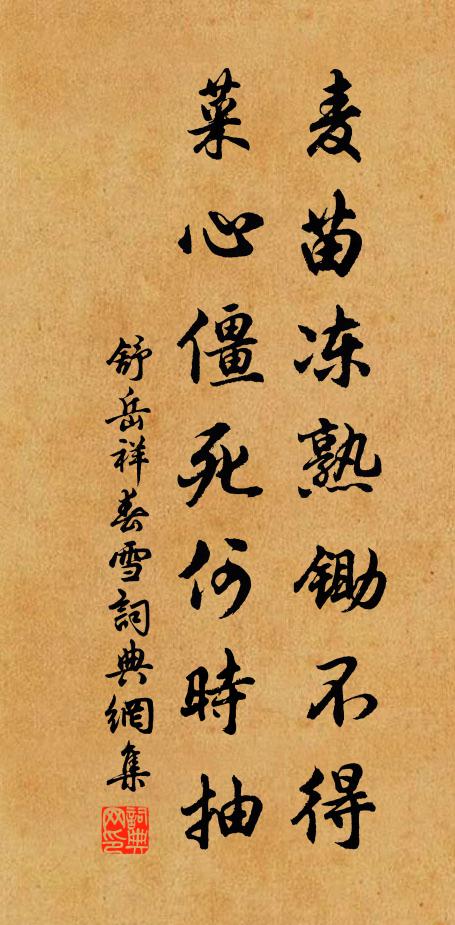 麦苗冻熟锄不得
菜心僵死何時抽
舒岳祥春雪詞典網集
詞典网印